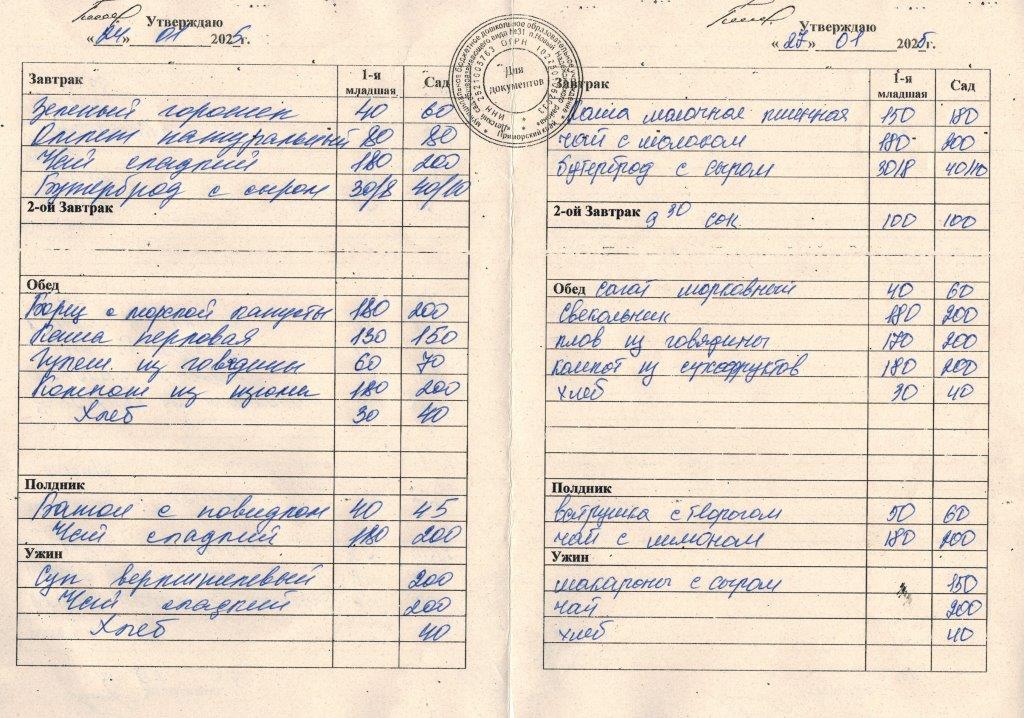 Утверждаю
«24» 01 2025г.
Завтрак 1-я младшая Сад
Зеленый горошек 40 60
Омлет натуральный 80 80
Чай сладкий 180 200
Бутерброд с сыром 30/8 40/10
2-ой Завтрак
Обед
Борщ с морской капусты 180 200
Каша перловая 130 150
Гуляш из говядины 60 70
Компот из изюма 180 200
Хлеб 30 40
Полдник
Батон с повидлом 40 45
Чай сладкий 180 200
Ужин
Суп вермишелевый 200
Чай сладкий 200
Хлеб 40
Для документов
Утверждаю
«27» 01 2025г.
Завтрак 1-я младшая Сад
Каша молочное пшенная 150 180
Чай с молоком 180 200
Бутерброд с сыром 30/8 40/10
2-ой Завтрак 9 30 сок 100 100
Обед салат морковный 40 60
Свекольник 180 200
плов из говядины 170 200
компот из сухофруктов 180 200
хлеб 30 40
Полдник
ватрушка с творогом 50 60
чай с лимоном 180 200
Ужин
макароны с сыром 150
чай 200
хлеб 40